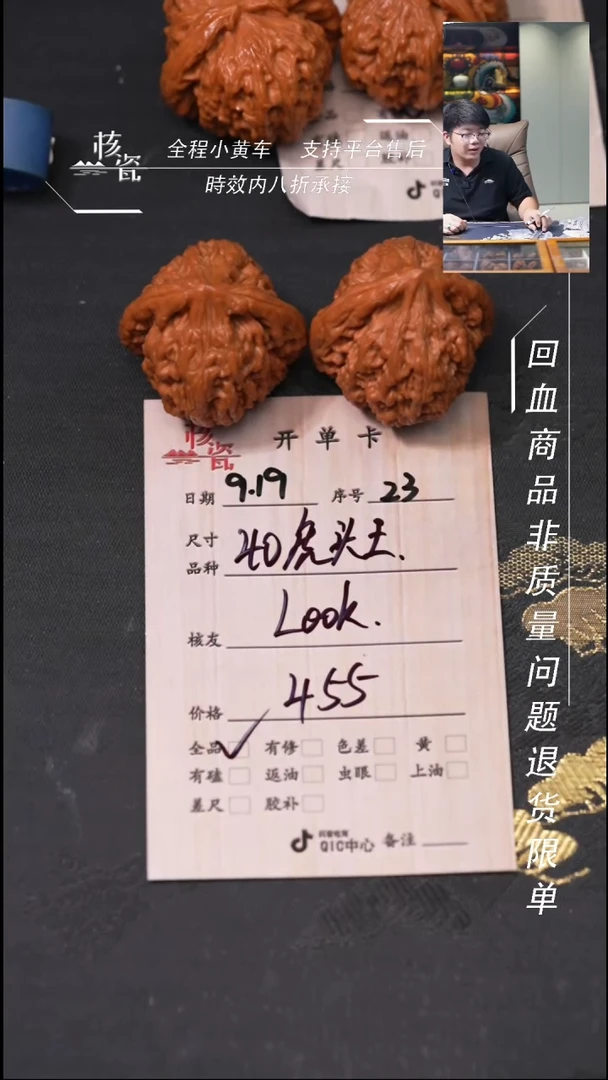 核瓷
全程小黄车 支持平台售后
時效内八折承接
返油
回血商品非质量问题退货限单
核瓷
开单卡
日期 9.19 序号 23
尺寸
品种 40虎头王.
核友 Look.
价格 455
全品 有修 色差 黄
有磕 返油 虫眼 上油
差尺 胶补
抖音电商
QIC中心 备注